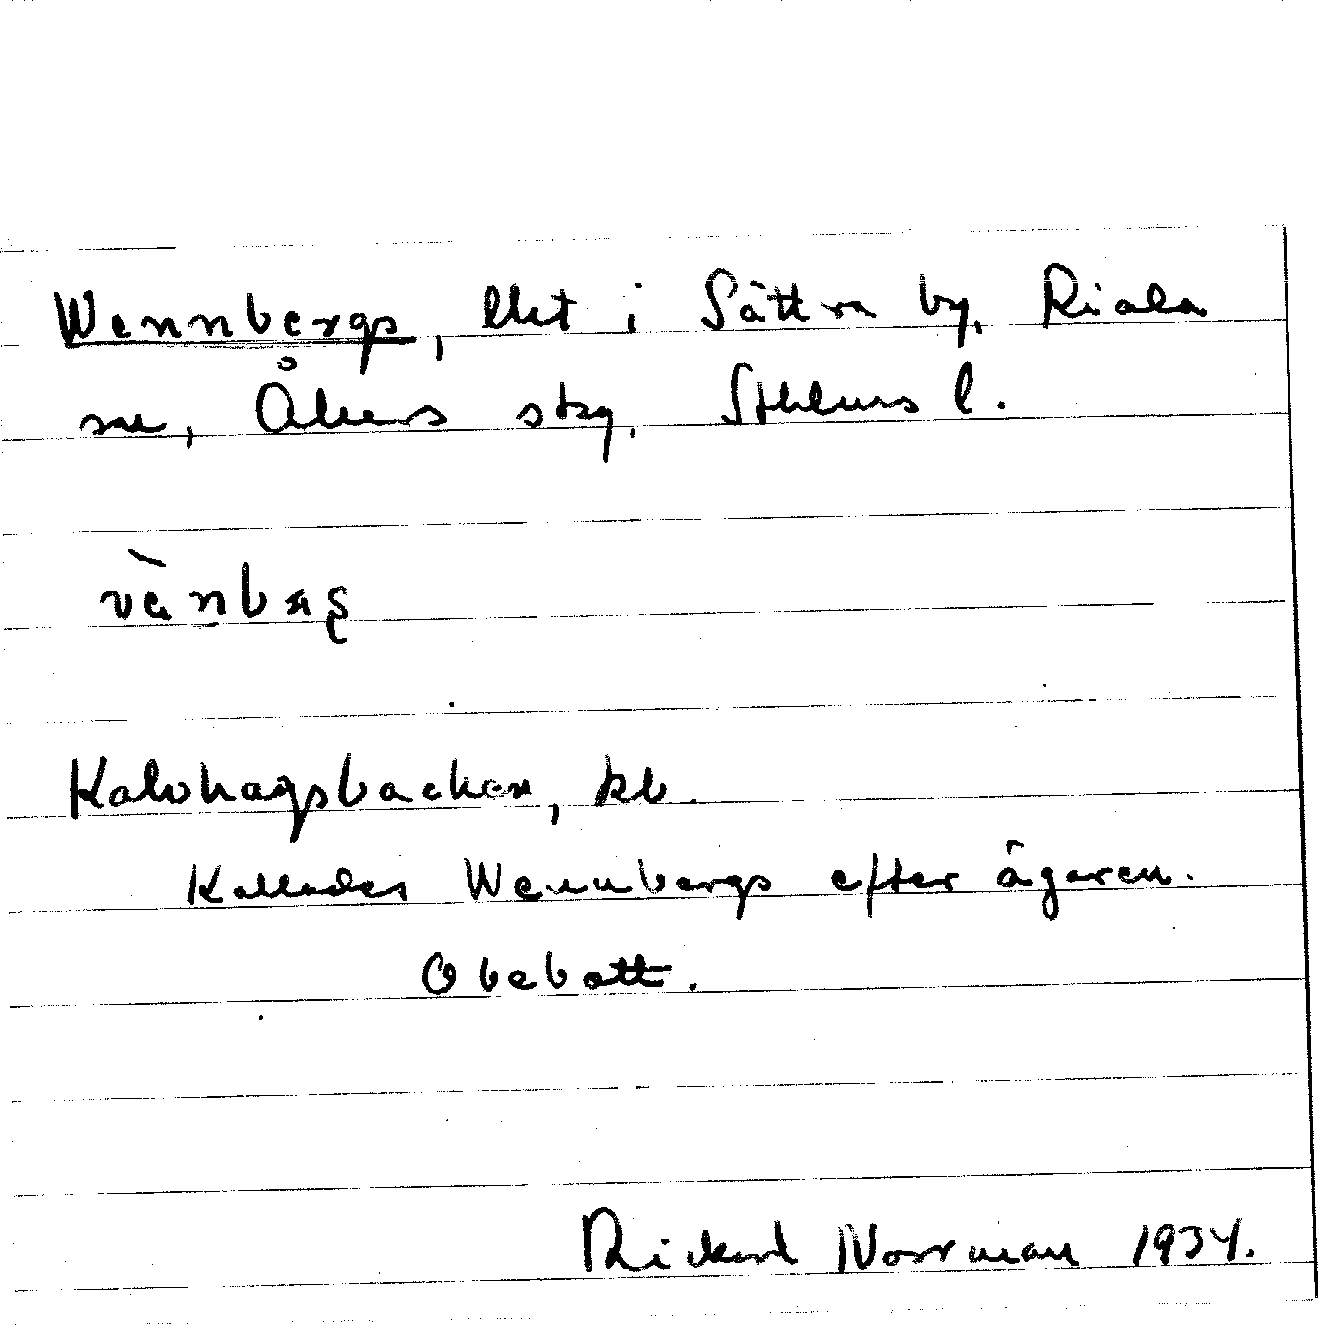 Wennbergs, lht i Sättra by, Riala
sn, Åkers skg, Sthlms l.
Kalvhagsbacken, kb.
Kallades Wennbergs efter ägaren.
Obebott.
Rickard Norrman 1934.